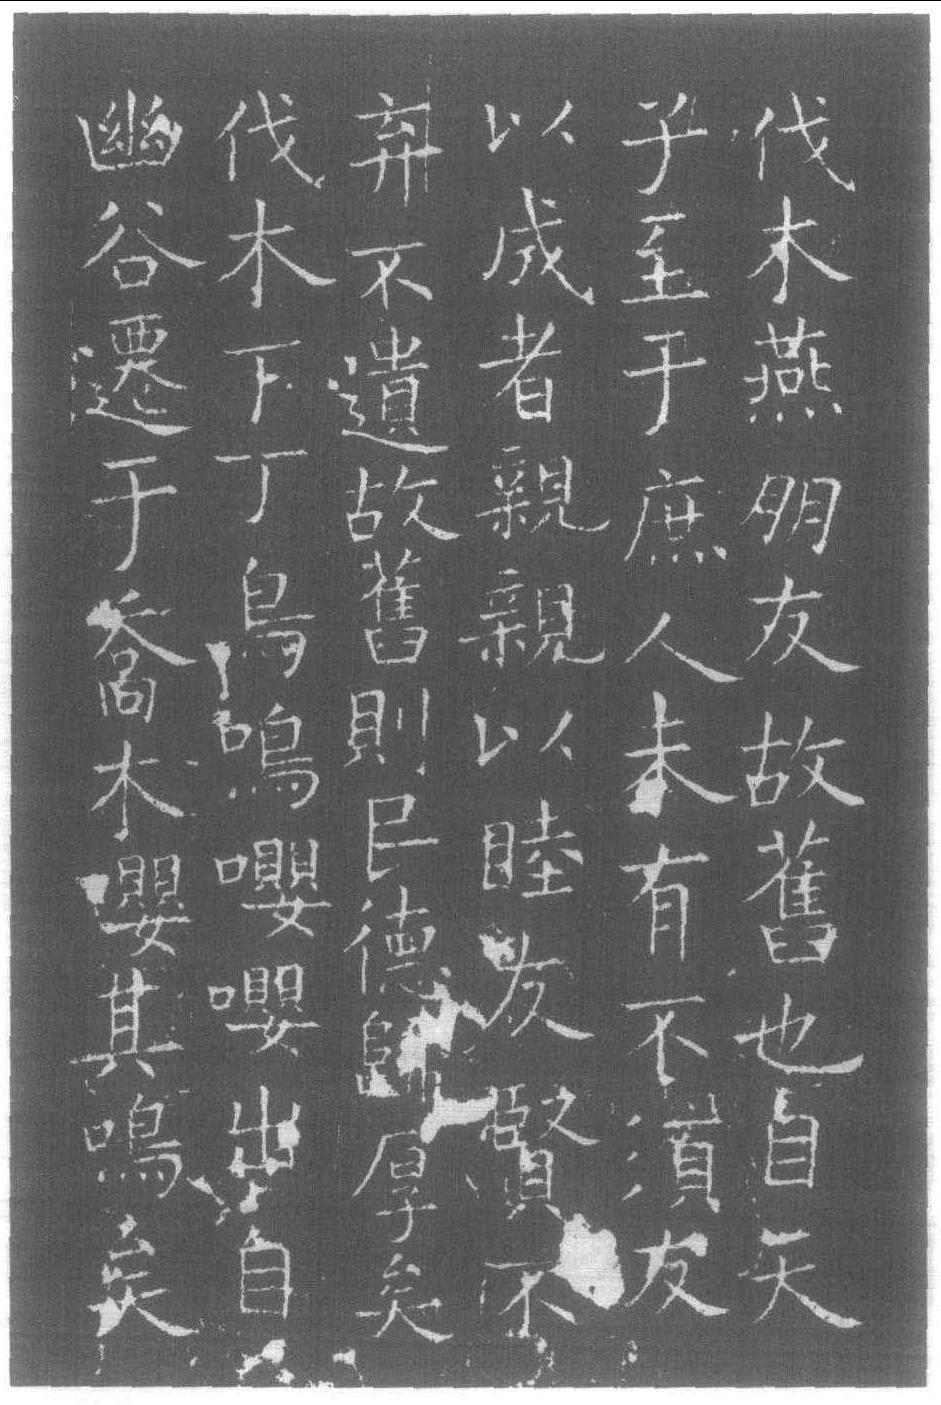 伐木燕朋友故舊也自天
子至于庶人未有不須友
以成者親親以睦友賢不
弃不遺故舊則民德歸厚矣
伐木丁丁鳥鳴嚶嚶出自
幽谷遷于喬木嚶其鳴矣